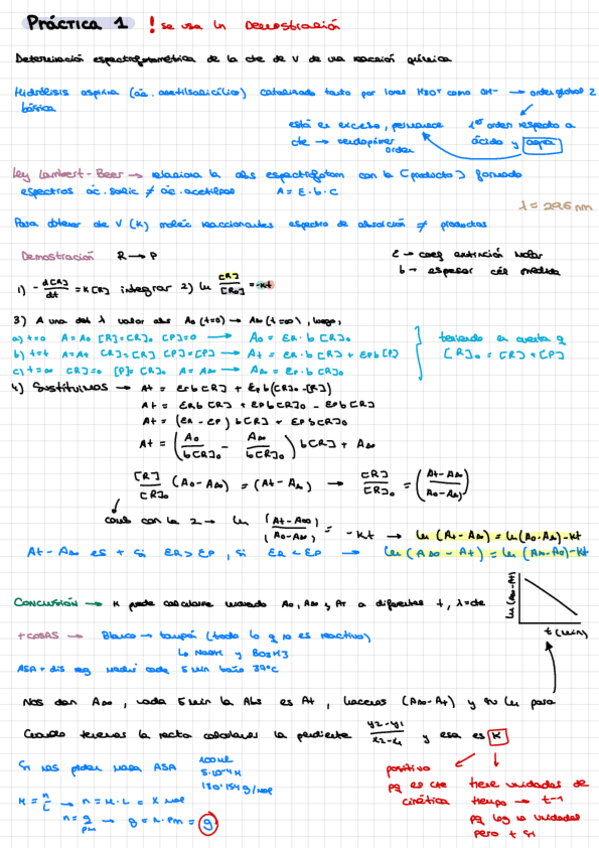 Práctica 1 ! se usa ln Demostración
Determinación espectrofotométrica de la cte de V de una reacción química
Hidrólisis aspirina (ác. acetilsalicílico) catalizada tanto por iones H3O+ como OH- → orden global 2
básica
está en exceso, permanece 1er orden respecto a
cte → pseudoprimer ácido y agua
orden
Ley Lambert-Beer → relaciona la abs espectrofotom con la [producto] formado
espectros ác. salic ≠ ác. acetilsal A = ε·b·c
λ = 296 nm
Para obtener de V (K) moléc reaccionantes espectro de absorción ≠ productos
Demostración R → P
ε → coef extinción molar
b → espesor cél medida
1) -d[R]/dt = K[R] integrar 2) ln [R]/[R]0 = -Kt
3) A una det λ valor abs A0 (t=0) → A∞ (t=∞), luego,
a) t=0 A=A0 [R]=[R]0 [P]=0 → A0 = ER·b[R]0
b) t=t A=At [R]=[R] [P]=[P] → At = ER·b[R] + EPb[P]
c) t=∞ [R]=0 [P]=[R]0 A=A∞ → A∞ = EP·b[R]0
teniendo en cuenta q
[R]0 = [R] + [P]
4) Sustituimos → At = ERb[R] + EPb([R]0-[R])
At = ERb[R] + EPb[R]0 - EPb[R]
At = (ER - EP) b[R] + EPb[R]0
At = (A0/b[R]0 - A∞/b[R]0) b[R] + A∞
[R]/[R]0 (A0-A∞) = (At-A∞) → [R]/[R]0 = (At-A∞/A0-A∞)
comb con la 2 → ln (At-A∞/A0-A∞) = -Kt → ln (At-A∞) = ln(A0-A∞)-Kt
At-A∞ es + si ER>EP, si ER < EP → ln (A∞-At) = ln (A∞-A0)-Kt
ln (A∞-At)
t (min)
Conclusión → K puede calcularse usando A0, A∞ y AT a diferentes t, λ=cte
+ cosas → Blanco → tampón (todo lo q no es reactivo)
↳ NaOH y BO3H3
ASA + dis reg medir cada 5 min baño 37ºC
Nos dan A∞, cada 5 min la Abs es At, hacemos (A∞-At) y su ln para
Cuando tenemos la recta calculamos la pendiente y2-y1/x2-x1 y esa es K
Si nos piden masa ASA 100 ml
5·10-4 M
180'154 g/mol
M = n/L → n = M·L = X mol
n = g/pm → g = n·pm = g
positivo
pq es cte
cinética
tiene unidades de
tiempo → t-1
pq log no unidades
pero t si